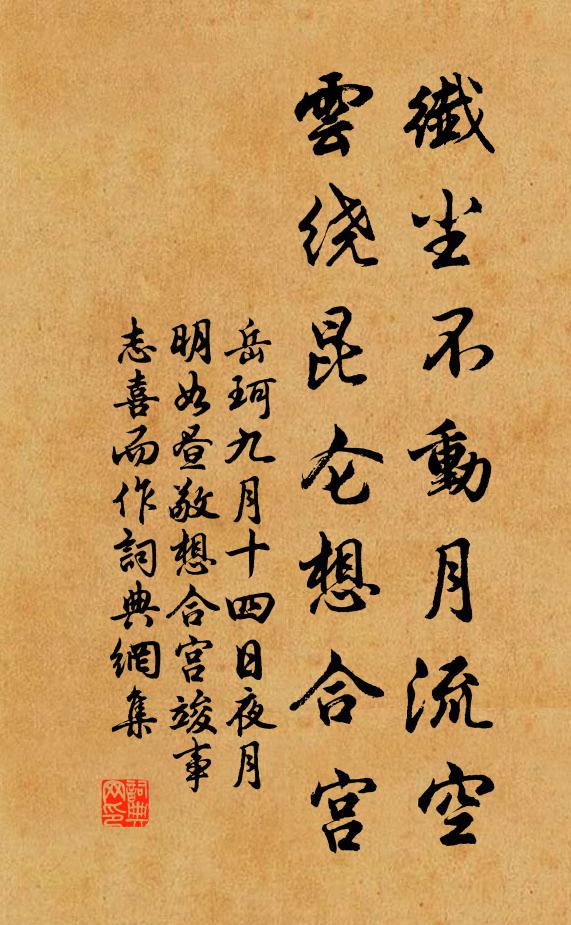 纖尘不動月流空
雲绕昆仑想合宫
岳珂九月十四日夜月
明如昼敬想合宫竣事
志喜而作詞典網集
詞典网印